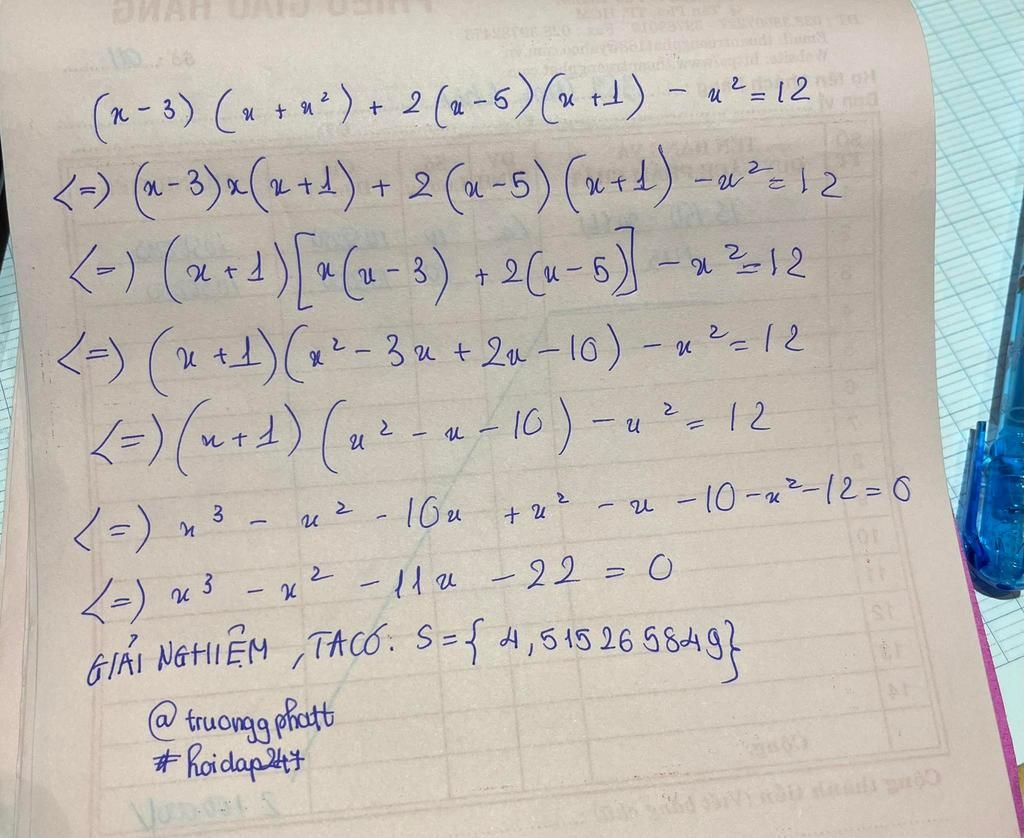 (x - 3) (x + x²) + 2(x - 5)(x + 1) - x² = 12
<=) (x - 3)x(x + 1) + 2(x - 5)(x + 1) - x² = 12
<=) (x + 1)[x(x - 3) + 2(x - 5)] - x² = 12
<=) (x + 1)(x² - 3x + 2x - 10) - x² = 12
<=) (x + 1)(x² - x - 10) - x² = 12
<=) x³ - x² - 10x + x² - x - 10 - x² - 12 = 0
<=) x³ - x² - 11x - 22 = 0
GIẢI NGHIỆM, TA CÓ: S = { 4,515265849}
@truonggphatt
#hoidap247